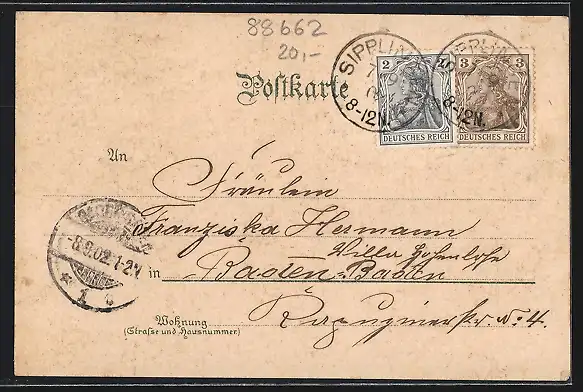 88662
20,-
SIPPLINGEN
8-12N.
SIPPLINGEN
8-12N.
2
DEUTSCHES REICH
3 3
DEUTSCHES REICH
Postkarte
An
Fräulein
Franziska Hermann
Villa Hohenlohe
in Baden-Baden
-8.9.02.1-2N
Wohnung
(Straße und Hausnummer)
Kapuzinerstr. No 4.